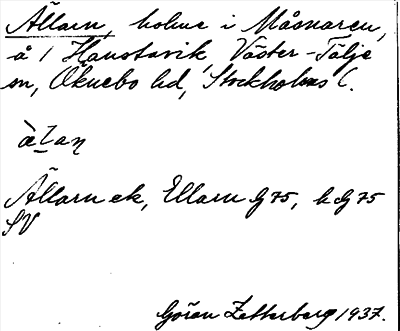 Ällarn, holme i Måsnaren,
å / Hanstavik, Väster-Tälje
sn, Öknebo hd, Stockholms l.
àlaṇ
Ällarn ek, Ellarn G 75, h G 75
SV
Göran Zetterberg 1937.